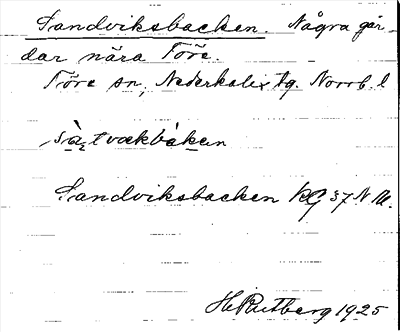 Sandviksbacken. Några går-
dar nära Töre.
Töre sn, Nederkalix tg. Norrb. l
Sandviksbacken KG 37 N.W.
H. Rutberg 1925